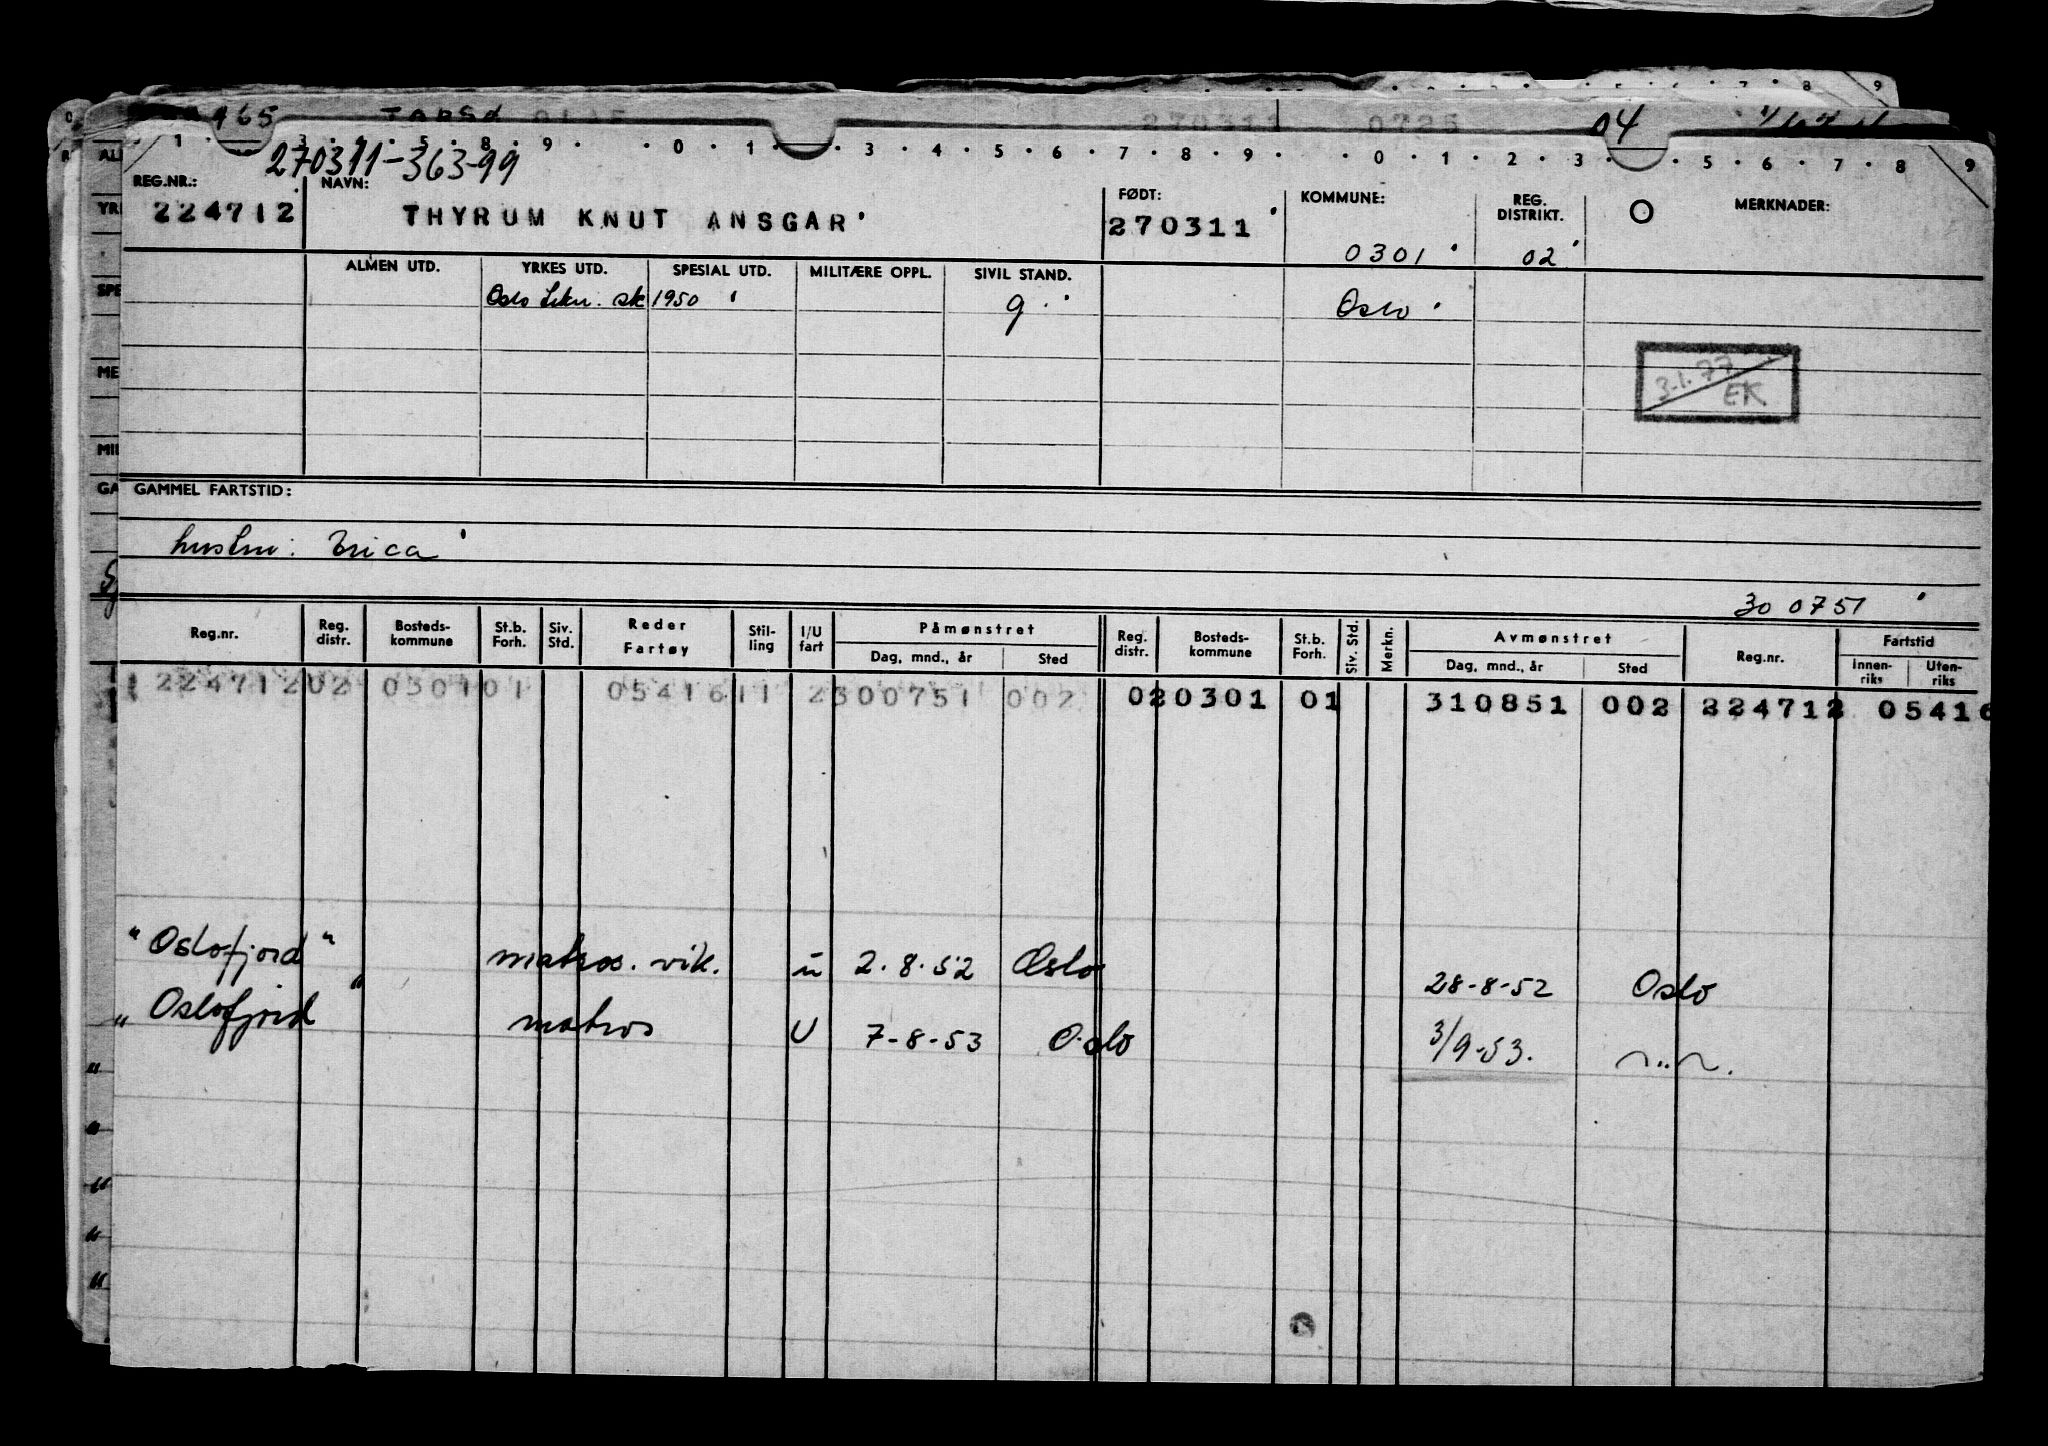 965 TORSØ OLAF 270311 0725 04
270311-363-99
REG.NR.: NAVN: FØDT: KOMMUNE: REG. DISTRIKT. MERKNADER:
224712 THYRUM KNUT ANSGAR 270311 0301 02
ALMEN UTD. YRKES UTD. SPESIAL UTD. MILITÆRE OPPL. SIVIL STAND.
Oslo 1950 g Oslo
3.1.77
EK
GAMMEL FARTSTID:
hustru: Erica
30 0751
Reg.nr. Reg. distr. Bosteds-kommune St.b. Forh. Siv. Std. Reder Fartøy Stil-ling I/U fart Påmønstret Dag, mnd., år Sted Reg. distr. Bosteds-kommune St.b. Forh. Siv. Std. Merkn. Avmønstret Dag, mnd., år Sted Reg.nr. Fartstid Innen-riks Uten-riks
224712 02 0301 01 0541611 2300751 002 020301 01 310851 002 224712 05416
"Oslofjord" matros. vik. u 2.8.52 Oslo 28-8-52 Oslo
"Oslofjord" matros U 7-8-53 Oslo 3/9-53.